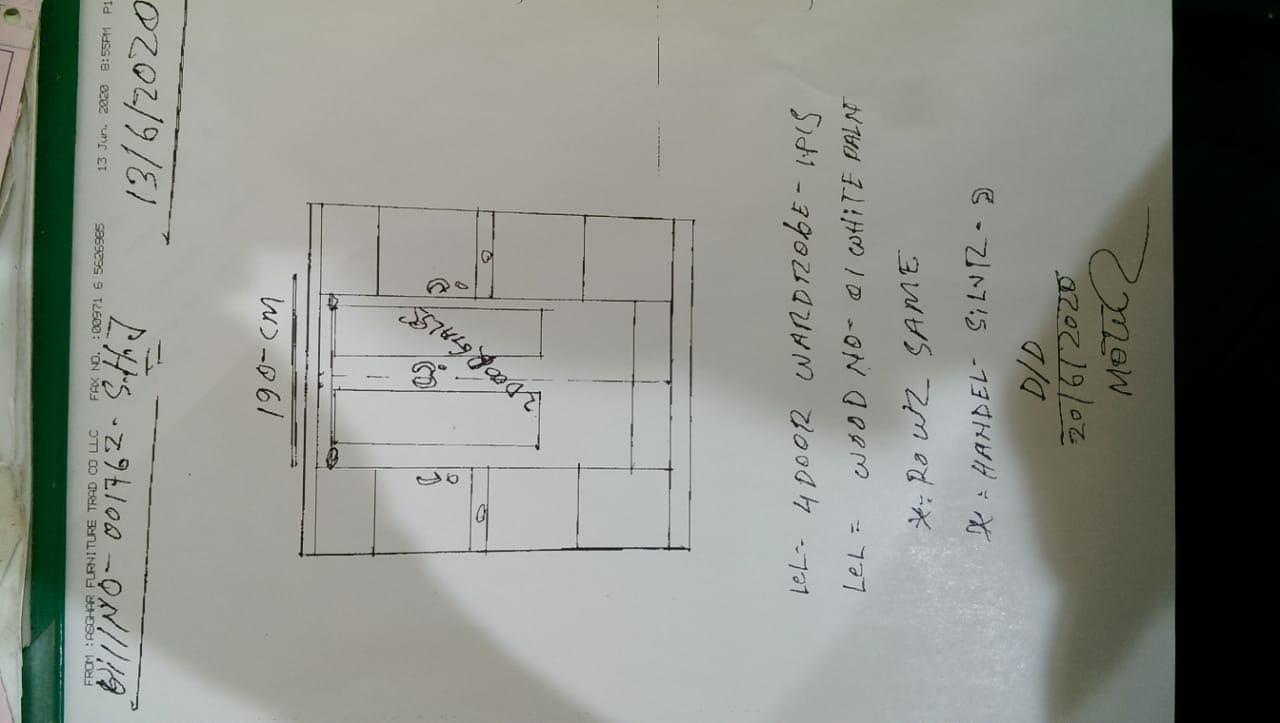 FROM :ASGHAR FURNITURE TRAD CO LLC FAX NO. :00971 6 5626985 13 Jun. 2020 8:55PM P1
Bill NO- 001762- S.H.J
13/6/2020
190-CM
2 DOOR GALSS
LeL= 4 DOOR WARDROBE- 1.PIS
LeL= WOOD NO- 01 WHITE PALNT
*: ROWZ SAME
*: HANDEL- SiLVR-
D/D
20/6/2020